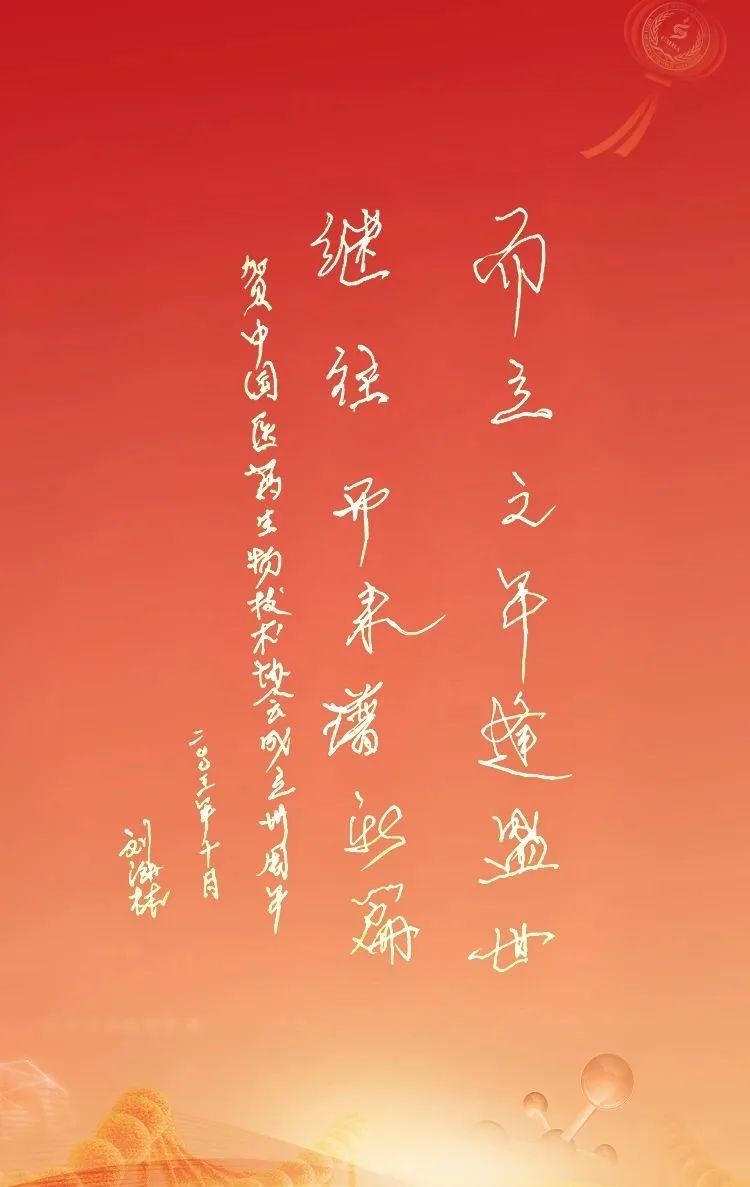 而立之年逢盛世
继往开来谱新篇
贺中国医药生物技术协会成立卅周年
二〇二三年十月